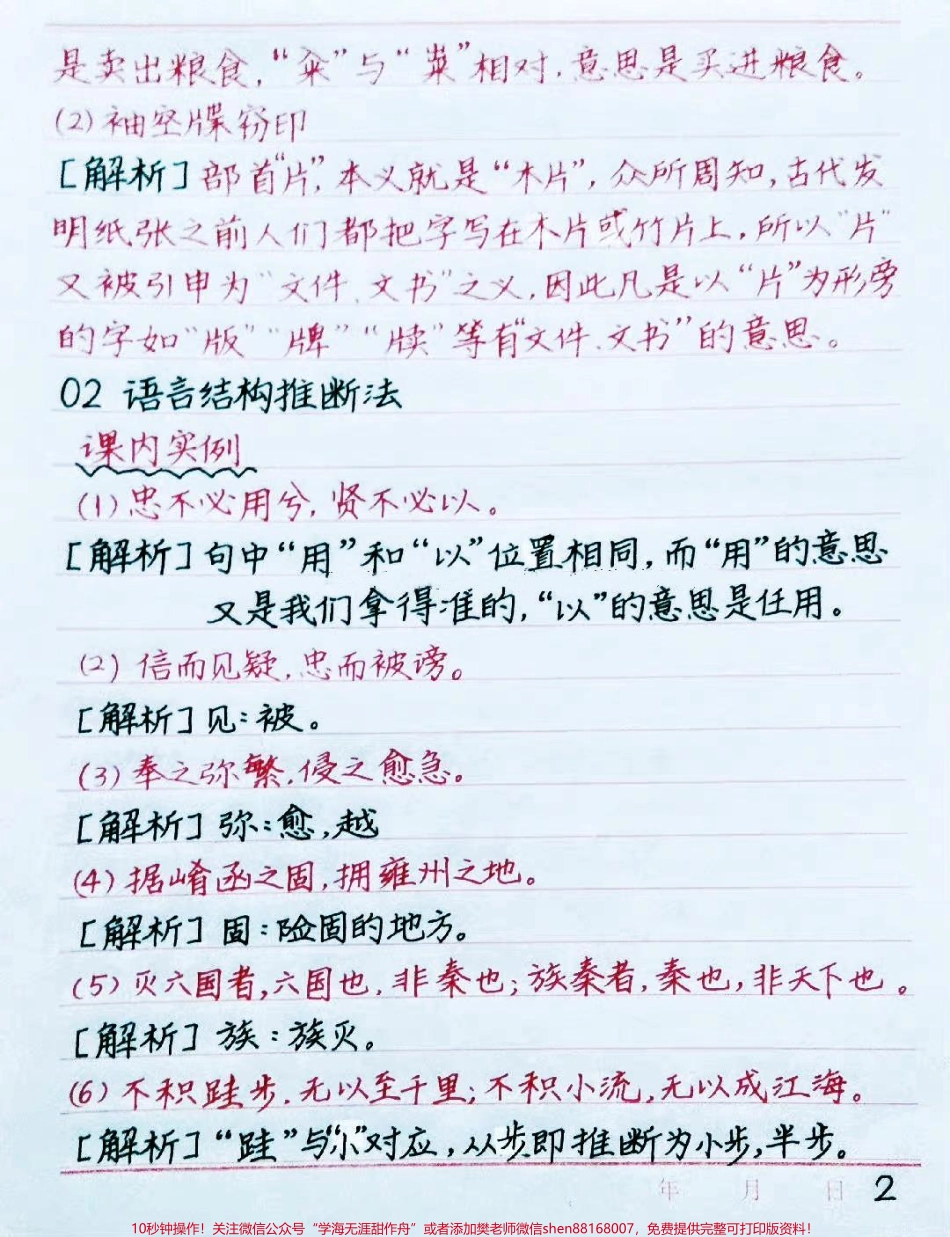 是卖出粮食,“籴”与“粜”相对,意思是买进粮食。
(2)袖空牒窃印
[解析]部首“片”,本义就是“木片”,众所周知,古代发
明纸张之前人们都把字写在木片或竹片上,所以“片”
又被引申为“文件、文书”之义,因此凡是以“片”为形旁
的字如“版”“牌”“牍”等有“文件、文书”的意思。
02 语言结构推断法
课内实例
(1)忠不必用兮,贤不必以。
[解析]句中“用”和“以”位置相同,而“用”的意思
又是我们拿得准的,“以”的意思是任用。
(2)信而见疑,忠而被谤。
[解析]见:被。
(3)奉之弥繁,侵之愈急。
[解析]弥:愈,越
(4)据崤函之固,拥雍州之地。
[解析]固:险固的地方。
(5)灭六国者,六国也,非秦也;族秦者,秦也,非天下也。
[解析]族:族灭。
(6)不积跬步,无以至千里;不积小流,无以成江海。
[解析]“跬”与“小”对应,从步即推断为小步,半步。
年 月 日 2
10秒钟操作!关注微信公众号“学海无涯甜作舟”或者添加樊老师微信shen88168007,免费提供完整可打印版资料!